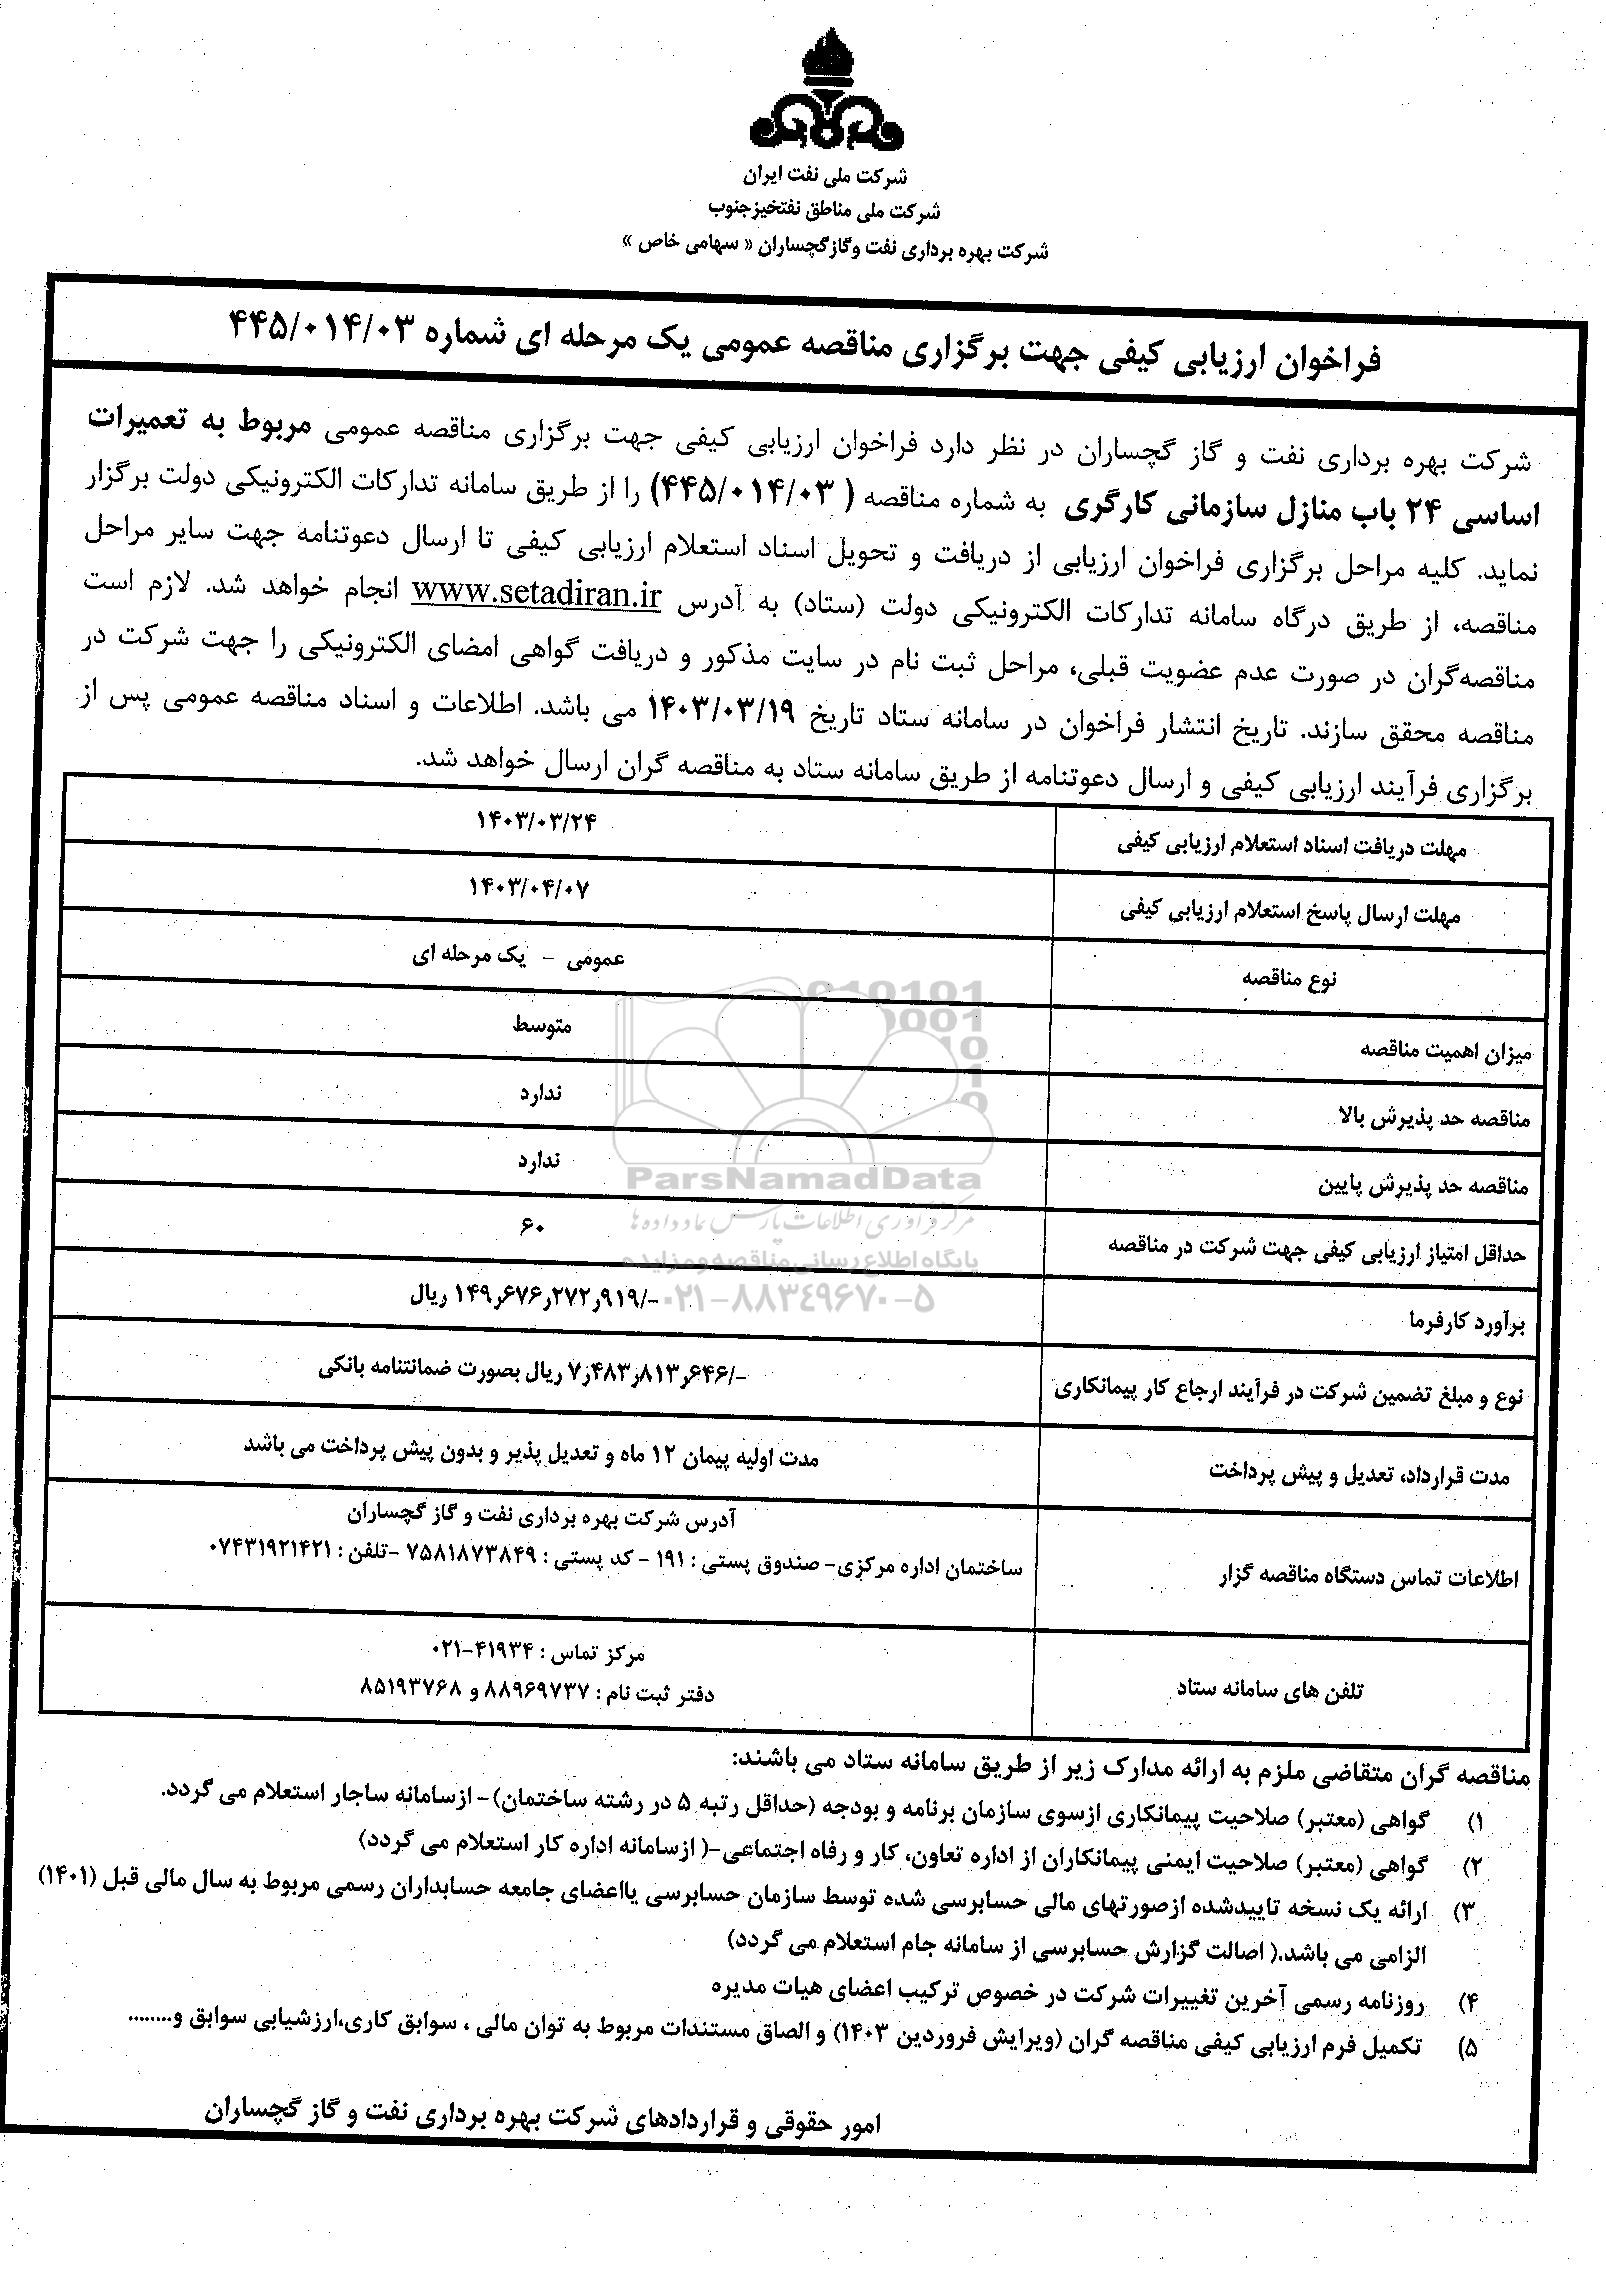 شرکت ملی نفت ایران
شرکت ملی مناطق نفتخیزجنوب
شرکت بهره برداری نفت وگازگچساران « سهامی خاص »
فراخوان ارزیابی کیفی جهت برگزاری مناقصه عمومی یک مرحله ای شماره ۴۴۵/۰۱۴/۰۳
شرکت بهره برداری نفت و گاز گچساران در نظر دارد فراخوان ارزیابی کیفی جهت برگزاری مناقصه عمومی مربوط به تعمیرات
اساسی ۲۴ باب منازل سازمانی کارگری به شماره مناقصه ( ۴۴۵/۰۱۴/۰۳) را از طریق سامانه تدارکات الکترونیکی دولت برگزار
نماید. کلیه مراحل برگزاری فراخوان ارزیابی از دریافت و تحویل اسناد استعلام ارزیابی کیفی تا ارسال دعوتنامه جهت سایر مراحل
مناقصه، از طریق درگاه سامانه تدارکات الکترونیکی دولت (ستاد) به آدرس www.setadiran.ir انجام خواهد شد. لازم است
مناقصه‌گران در صورت عدم عضویت قبلی، مراحل ثبت نام در سایت مذکور و دریافت گواهی امضای الکترونیکی را جهت شرکت در
مناقصه محقق سازند. تاریخ انتشار فراخوان در سامانه ستاد تاریخ ۱۴۰۳/۰۳/۱۹ می باشد. اطلاعات و اسناد مناقصه عمومی پس از
برگزاری فرآیند ارزیابی کیفی و ارسال دعوتنامه از طریق سامانه ستاد به مناقصه گران ارسال خواهد شد.
مهلت دریافت اسناد استعلام ارزیابی کیفی
۱۴۰۳/۰۳/۲۴
مهلت ارسال پاسخ استعلام ارزیابی کیفی
۱۴۰۳/۰۴/۰۷
نوع مناقصه
عمومی - یک مرحله ای
میزان اهمیت مناقصه
متوسط
مناقصه حد پذیرش بالا
ندارد
مناقصه حد پذیرش پایین
ندارد
حداقل امتیاز ارزیابی کیفی جهت شرکت در مناقصه
۶۰
برآورد کارفرما
۱۴۹,۶۷۶,۲۷۲,۹۱۹/- ریال
نوع و مبلغ تضمین شرکت در فرآیند ارجاع کار پیمانکاری
۷,۴۸۳,۸۱۳,۶۴۶/- ریال بصورت ضمانتنامه بانکی
مدت قرارداد، تعدیل و پیش پرداخت
مدت اولیه پیمان ۱۲ ماه و تعدیل پذیر و بدون پیش پرداخت می باشد
اطلاعات تماس دستگاه مناقصه گزار
آدرس شرکت بهره برداری نفت و گاز گچساران
ساختمان اداره مرکزی- صندوق پستی : ۱۹۱ - کد پستی : ۷۵۸۱۸۷۳۸۴۹ -تلفن : ۰۷۴۳۱۹۲۱۴۲۱
تلفن های سامانه ستاد
مرکز تماس : ۴۱۹۳۴-۰۲۱
دفتر ثبت نام : ۸۸۹۶۹۷۳۷ و ۸۵۱۹۳۷۶۸
ParsNamadData
مرکز فرآوری اطلاعات پارس نماد داده‌ها
پایگاه اطلاع رسانی مناقصه و مزایده
۰۲۱-۸۸۳۴۹۶۷۰-۵
مناقصه گران متقاضی ملزم به ارائه مدارک زیر از طریق سامانه ستاد می باشند:
۱) گواهی (معتبر) صلاحیت پیمانکاری ازسوی سازمان برنامه و بودجه (حداقل رتبه ۵ در رشته ساختمان)- ازسامانه ساجار استعلام می گردد.
۲) گواهی (معتبر) صلاحیت ایمنی پیمانکاران از اداره تعاون، کار و رفاه اجتماعی-( ازسامانه اداره کار استعلام می گردد)
۳) ارائه یک نسخه تاییدشده ازصورتهای مالی حسابرسی شده توسط سازمان حسابرسی یااعضای جامعه حسابداران رسمی مربوط به سال مالی قبل (۱۴۰۱)
الزامی می باشد.( اصالت گزارش حسابرسی از سامانه جام استعلام می گردد)
۴) روزنامه رسمی آخرین تغییرات شرکت در خصوص ترکیب اعضای هیات مدیره
۵) تکمیل فرم ارزیابی کیفی مناقصه گران (ویرایش فروردین ۱۴۰۳) و الصاق مستندات مربوط به توان مالی ، سوابق کاری،ارزشیابی سوابق و........
امور حقوقی و قراردادهای شرکت بهره برداری نفت و گاز گچساران